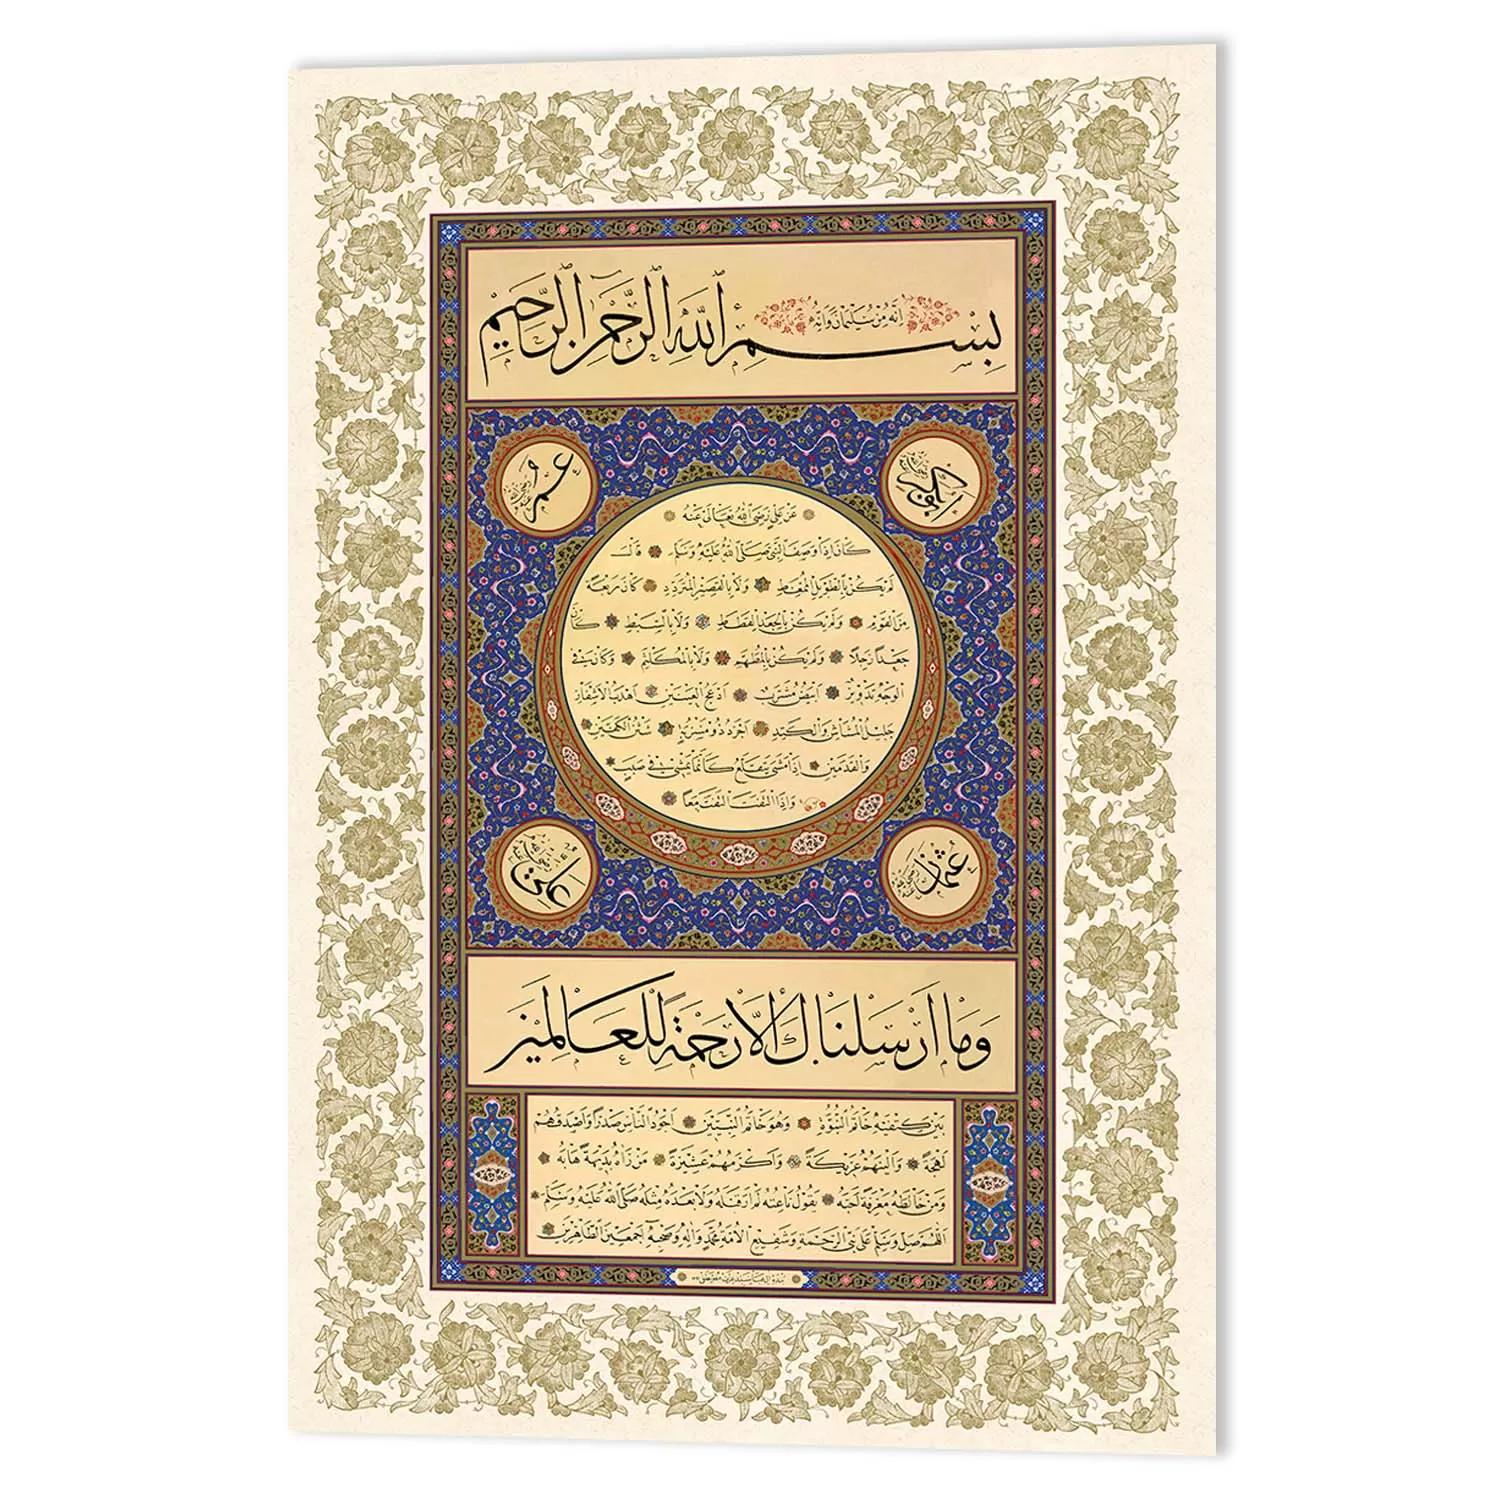 بِسْمِ اللّٰهِ الرَّحْمٰنِ الرَّحِيمِ
اِنَّهُ مِنْ سُلَيْمَانَ وَاِنَّهُ
اَبُو بَكْرٍ رضي الله عنه
عُمَرُ رضي الله عنه
عَنْ عَلِيٍّ رَضِىَ اللّٰهُ تَعَالٰى عَنْهُ
كَانَ اِذَا وَصَفَ النَّبِىَّ صَلَّى اللّٰهُ عَلَيْهِ وَسَلَّمَ قَالَ
لَمْ يَكُنْ بِالطَّوِيلِ الْمُمَّغِطِ وَلَا بِالْقَصِيرِ الْمُتَرَدِّدِ كَانَ رَبْعَةً
مِنَ الْقَوْمِ وَلَمْ يَكُنْ بِالْجَعْدِ الْقَطَطِ وَلَا بِالسَّبِطِ كَانَ
جَعْدًا رَجِلًا وَلَمْ يَكُنْ بِالْمُطَهَّمِ وَلَا بِالْمُكَلْثَمِ وَكَانَ فِى
الْوَجْهِ تَدْوِيرٌ اَبْيَضُ مُشْرَبٌ اَدْعَجُ الْعَيْنَيْنِ اَهْدَبُ الْاَشْفَارِ
جَلِيلُ الْمُشَاشِ وَالْكَتَدِ اَجْرَدُ ذُو مَسْرُبَةٍ شَثْنُ الْكَفَّيْنِ
وَالْقَدَمَيْنِ اِذَا مَشٰى يَتَقَلَّعُ كَاَنَّمَا يَمْشِى فِى صَبَبٍ
وَاِذَا الْتَفَتَ الْتَفَتَ مَعًا
عُثْمَانُ رضي الله عنه
عَلِىٌّ رضي الله عنه
وَمَا اَرْسَلْنَاكَ اِلَّا رَحْمَةً لِلْعَالَمِينَ
بَيْنَ كَتِفَيْهِ خَاتَمُ النُّبُوَّةِ وَهُوَ خَاتَمُ النَّبِيِّينَ اَجْوَدُ النَّاسِ صَدْرًا وَاَصْدَقُهُمْ
لَهْجَةً وَاَلْيَنُهُمْ عَرِيكَةً وَاَكْرَمُهُمْ عَشِيرَةً مَنْ رَآهُ بَدِيهَةً هَابَهُ
وَمَنْ خَالَطَهُ مَعْرِفَةً اَحَبَّهُ يَقُولُ نَاعِتُهُ لَمْ اَرَ قَبْلَهُ وَلَا بَعْدَهُ مِثْلَهُ صَلَّى اللّٰهُ عَلَيْهِ وَسَلَّمَ
اَللّٰهُمَّ صَلِّ وَسَلِّمْ عَلٰى نَبِىِّ الرَّحْمَةِ وَشَفِيعِ الْاُمَّةِ مُحَمَّدٍ وَاٰلِهِ وَصَحْبِهِ اَجْمَعِينَ الطَّاهِرِينَ